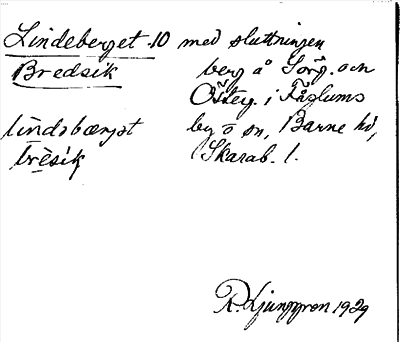 Lindeberget 10 med sluttningen
Bredsik berg å Sörg. och
Österg. i Fåglums
lindsbærjət by o sn, Barne hd,
brèsik Skarab. l.
R. Ljunggren 1929